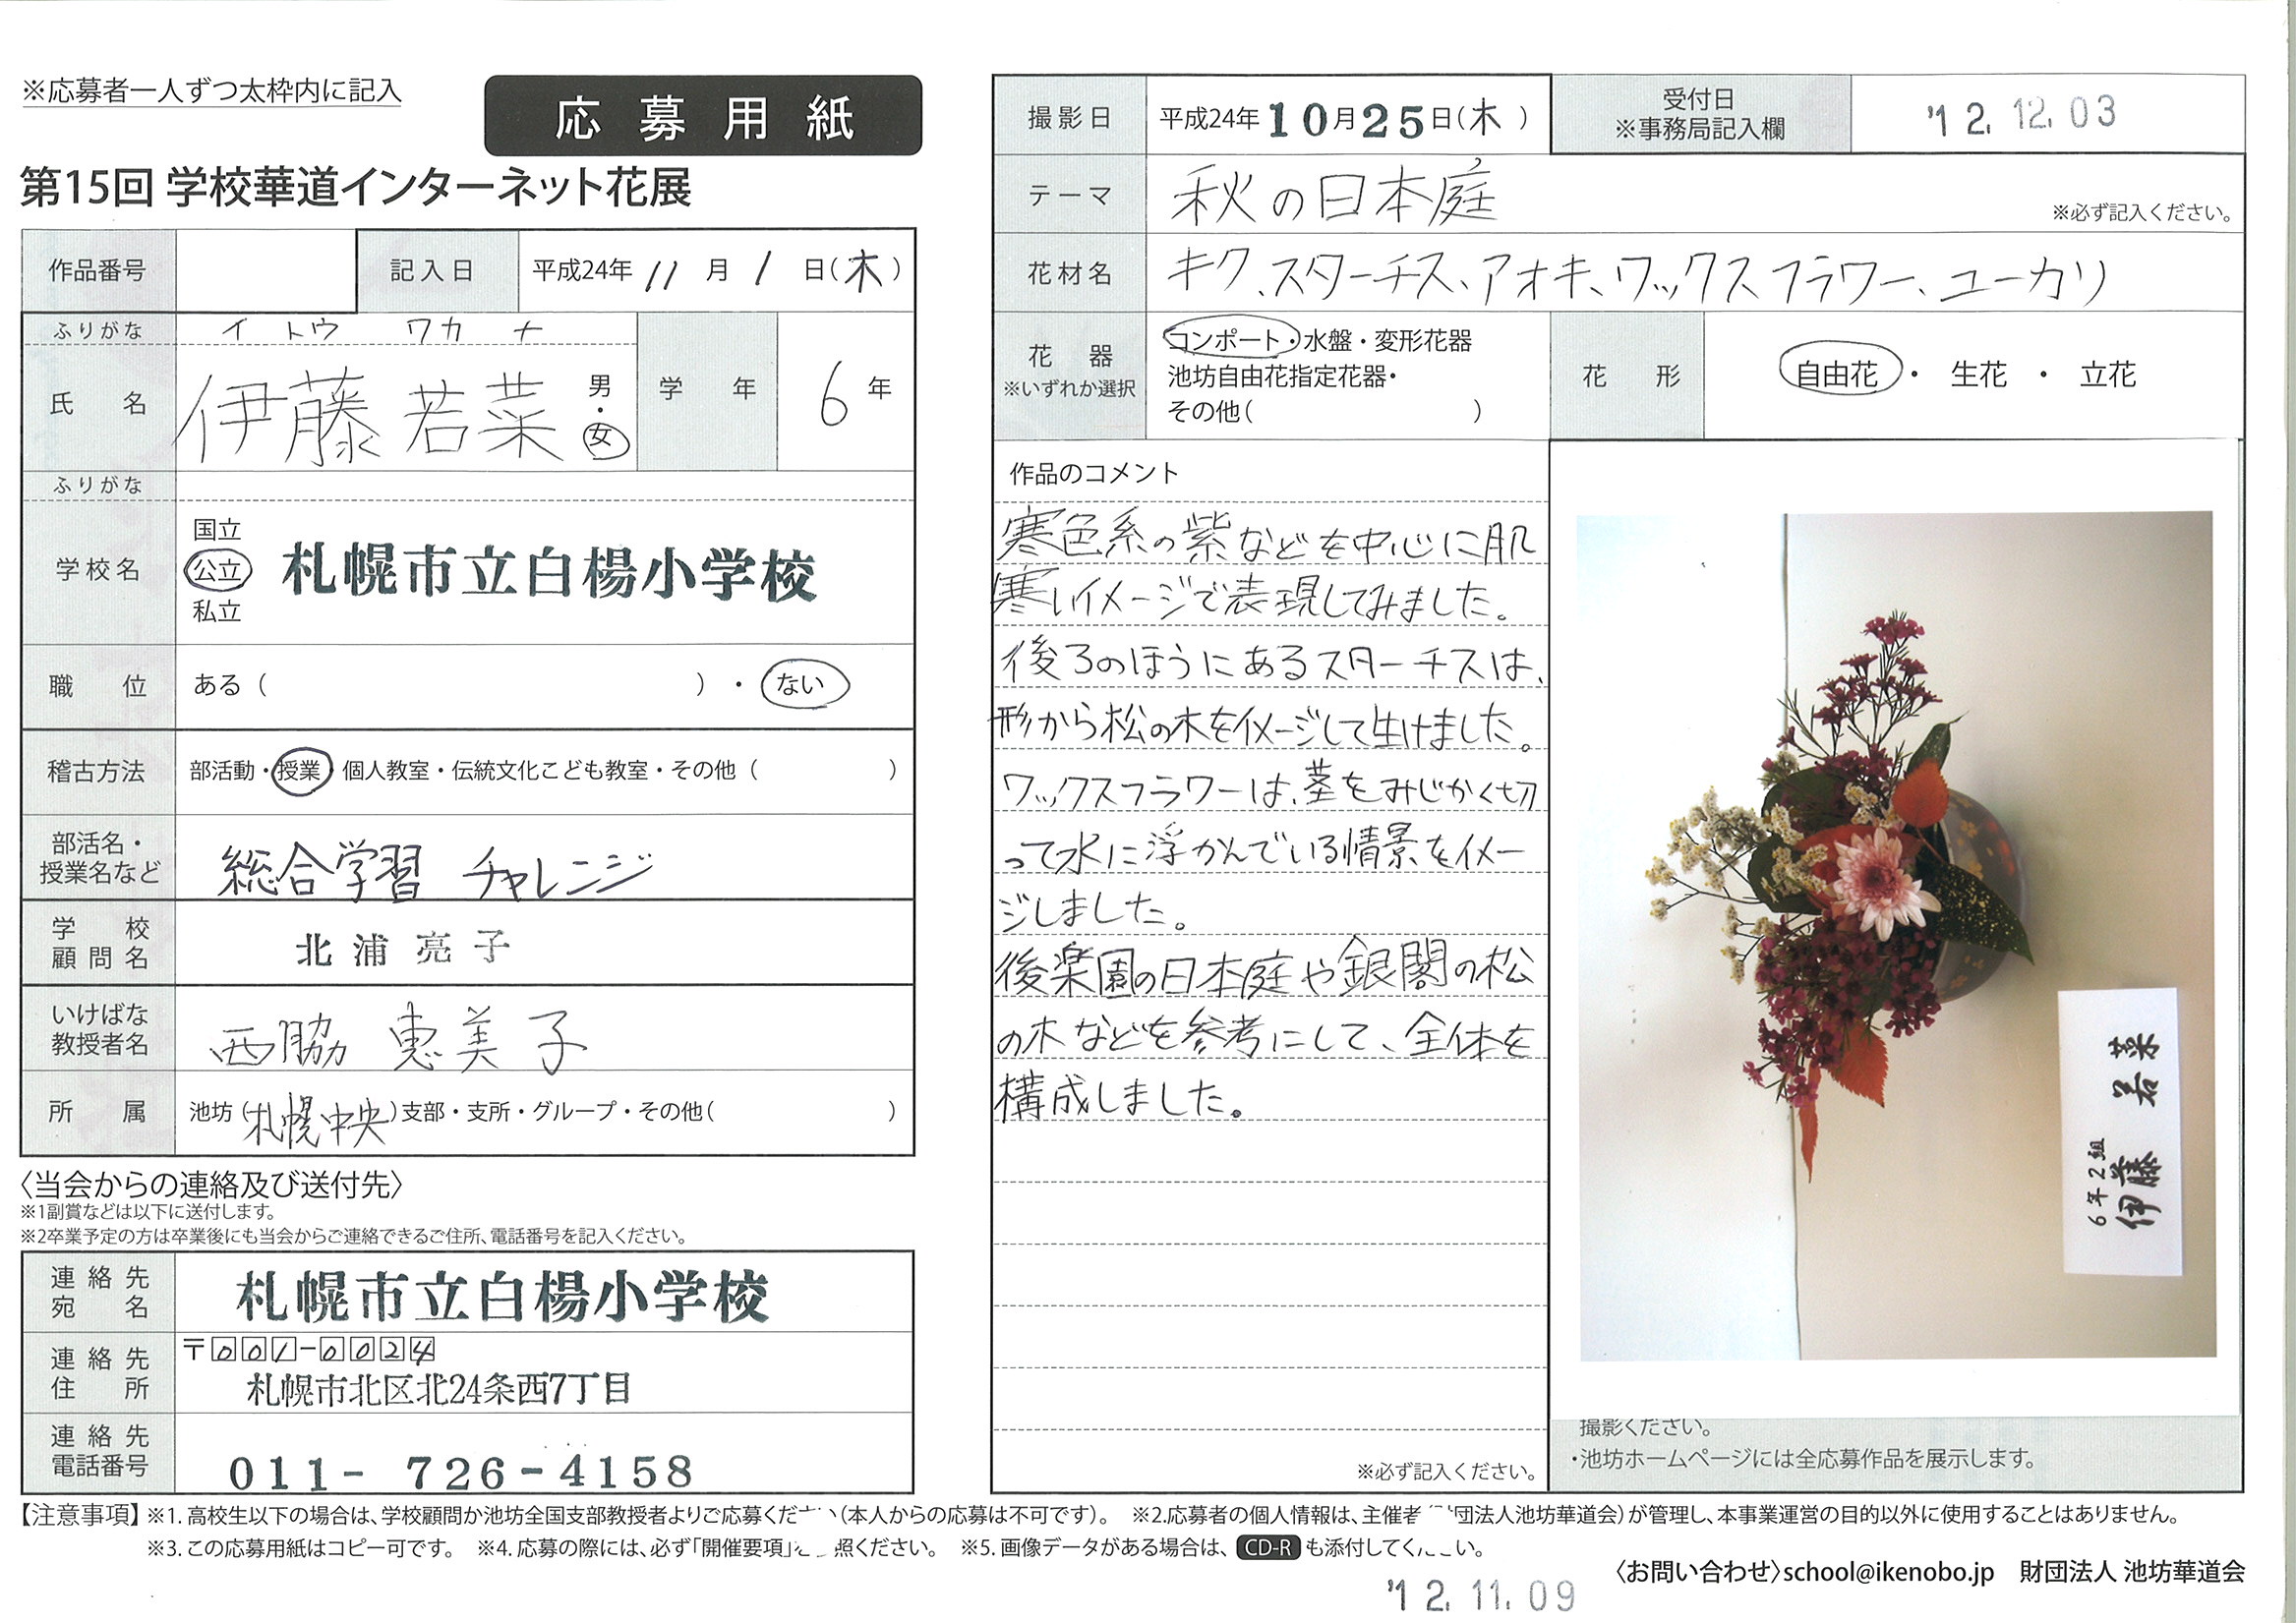 ※応募者一人ずつ太枠内に記入
応募用紙
第15回 学校華道インターネット花展
作品番号
記入日 平成24年 11月 1日(木)
ふりがな イトウ ワカナ
氏名 伊藤 若菜 男・女
学年 6年
ふりがな
学校名 国立 公立 私立 札幌市立白楊小学校
職位 ある( )・ない
稽古方法 部活動・授業・個人教室・伝統文化こども教室・その他( )
部活名・授業名など 総合学習 チャレンジ
学校顧問名 北浦亮子
いけばな教授者名 西脇 恵美子
所属 池坊(札幌中央)支部・支所・グループ・その他( )
〈当会からの連絡及び送付先〉
※1副賞などは以下に送付します。
※2卒業予定の方は卒業後にも当会からご連絡できるご住所、電話番号を記入ください。
連絡先宛名 札幌市立白楊小学校
連絡先住所 〒001-0024
札幌市北区北24条西7丁目
連絡先電話番号 011-726-4158
撮影日 平成24年10月25日(木)
受付日 ※事務局記入欄 '12.12.03
テーマ 秋の日本庭 ※必ず記入ください。
花材名 キク、スターチス、アオキ、ワックスフラワー、ユーカリ
花器 ※いずれか選択 コンポート・水盤・変形花器
池坊自由花指定花器・
その他( )
花形 自由花・生花・立花
作品のコメント
寒色系の紫などを中心に肌
寒いイメージで表現してみました。
後ろのほうにあるスターチスは、
形から松の木をイメージして生けました。
ワックスフラワーは、茎をみじかく切
って水に浮かんでいる情景をイメー
ジしました。
後楽園の日本庭や銀閣の松
の木などを参考にして、全体を
構成しました。
※必ず記入ください。
6年2組
伊藤 若菜
撮影ください。
・池坊ホームページには全応募作品を展示します。
【注意事項】※1. 高校生以下の場合は、学校顧問か池坊全国支部教授者よりご応募くだ (本人からの応募は不可です)。 ※2.応募者の個人情報は、主催者 団法人池坊華道会)が管理し、本事業運営の目的以外に使用することはありません。
※3. この応募用紙はコピー可です。 ※4. 応募の際には、必ず「開催要項」 照ください。 ※5. 画像データがある場合は、CD-R も添付してく い。
〈お問い合わせ〉school@ikenobo.jp 財団法人 池坊華道会
'12.11.09